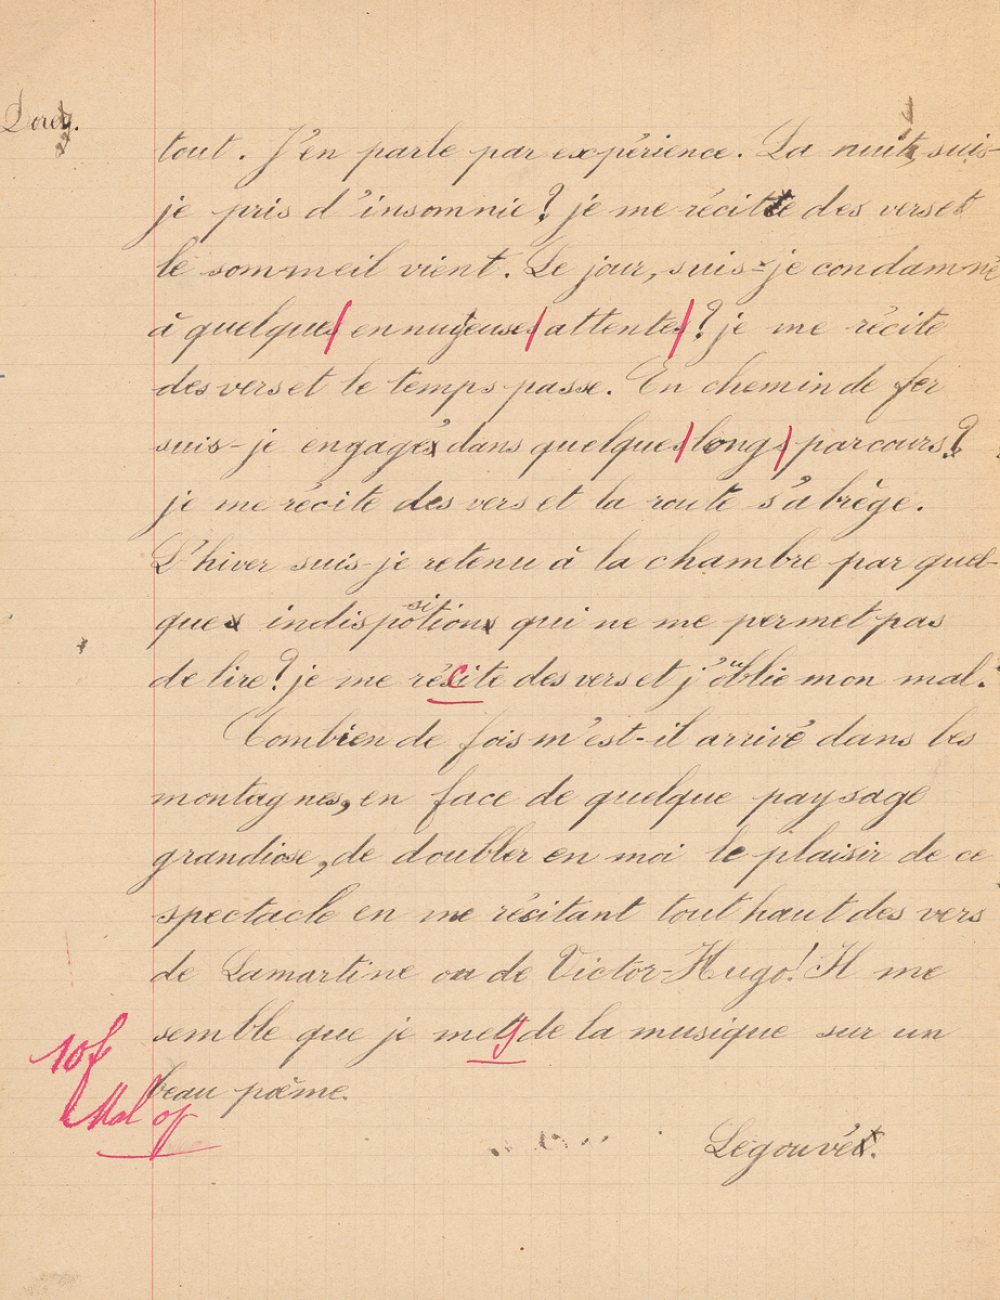 Dorey.
tout. J'en parle par expérience. La nuit, suis-
je pris d'insomnie? je me récite des vers et
le sommeil vient. Le jour, suis-je condamné
à quelques ennuyeuses attentes? je me récite
des vers et le temps passe. En chemin de fer
suis-je engagé dans quelques longs parcours?
je me récite des vers et la route s'abrège.
L'hiver suis-je retenu à la chambre par quel-
que indisposition qui ne me permet pas
de lire? je me récite des vers et j'oublie mon mal.
Combien de fois m'est-il arrivé dans les
montagnes, en face de quelque paysage
grandiose, de doubler en moi le plaisir de ce
spectacle en me récitant tout haut des vers
de Lamartine ou de Victor-Hugo! Il me
semble que je mets de la musique sur un
10f
beau poème.
Mal
Legouvé.